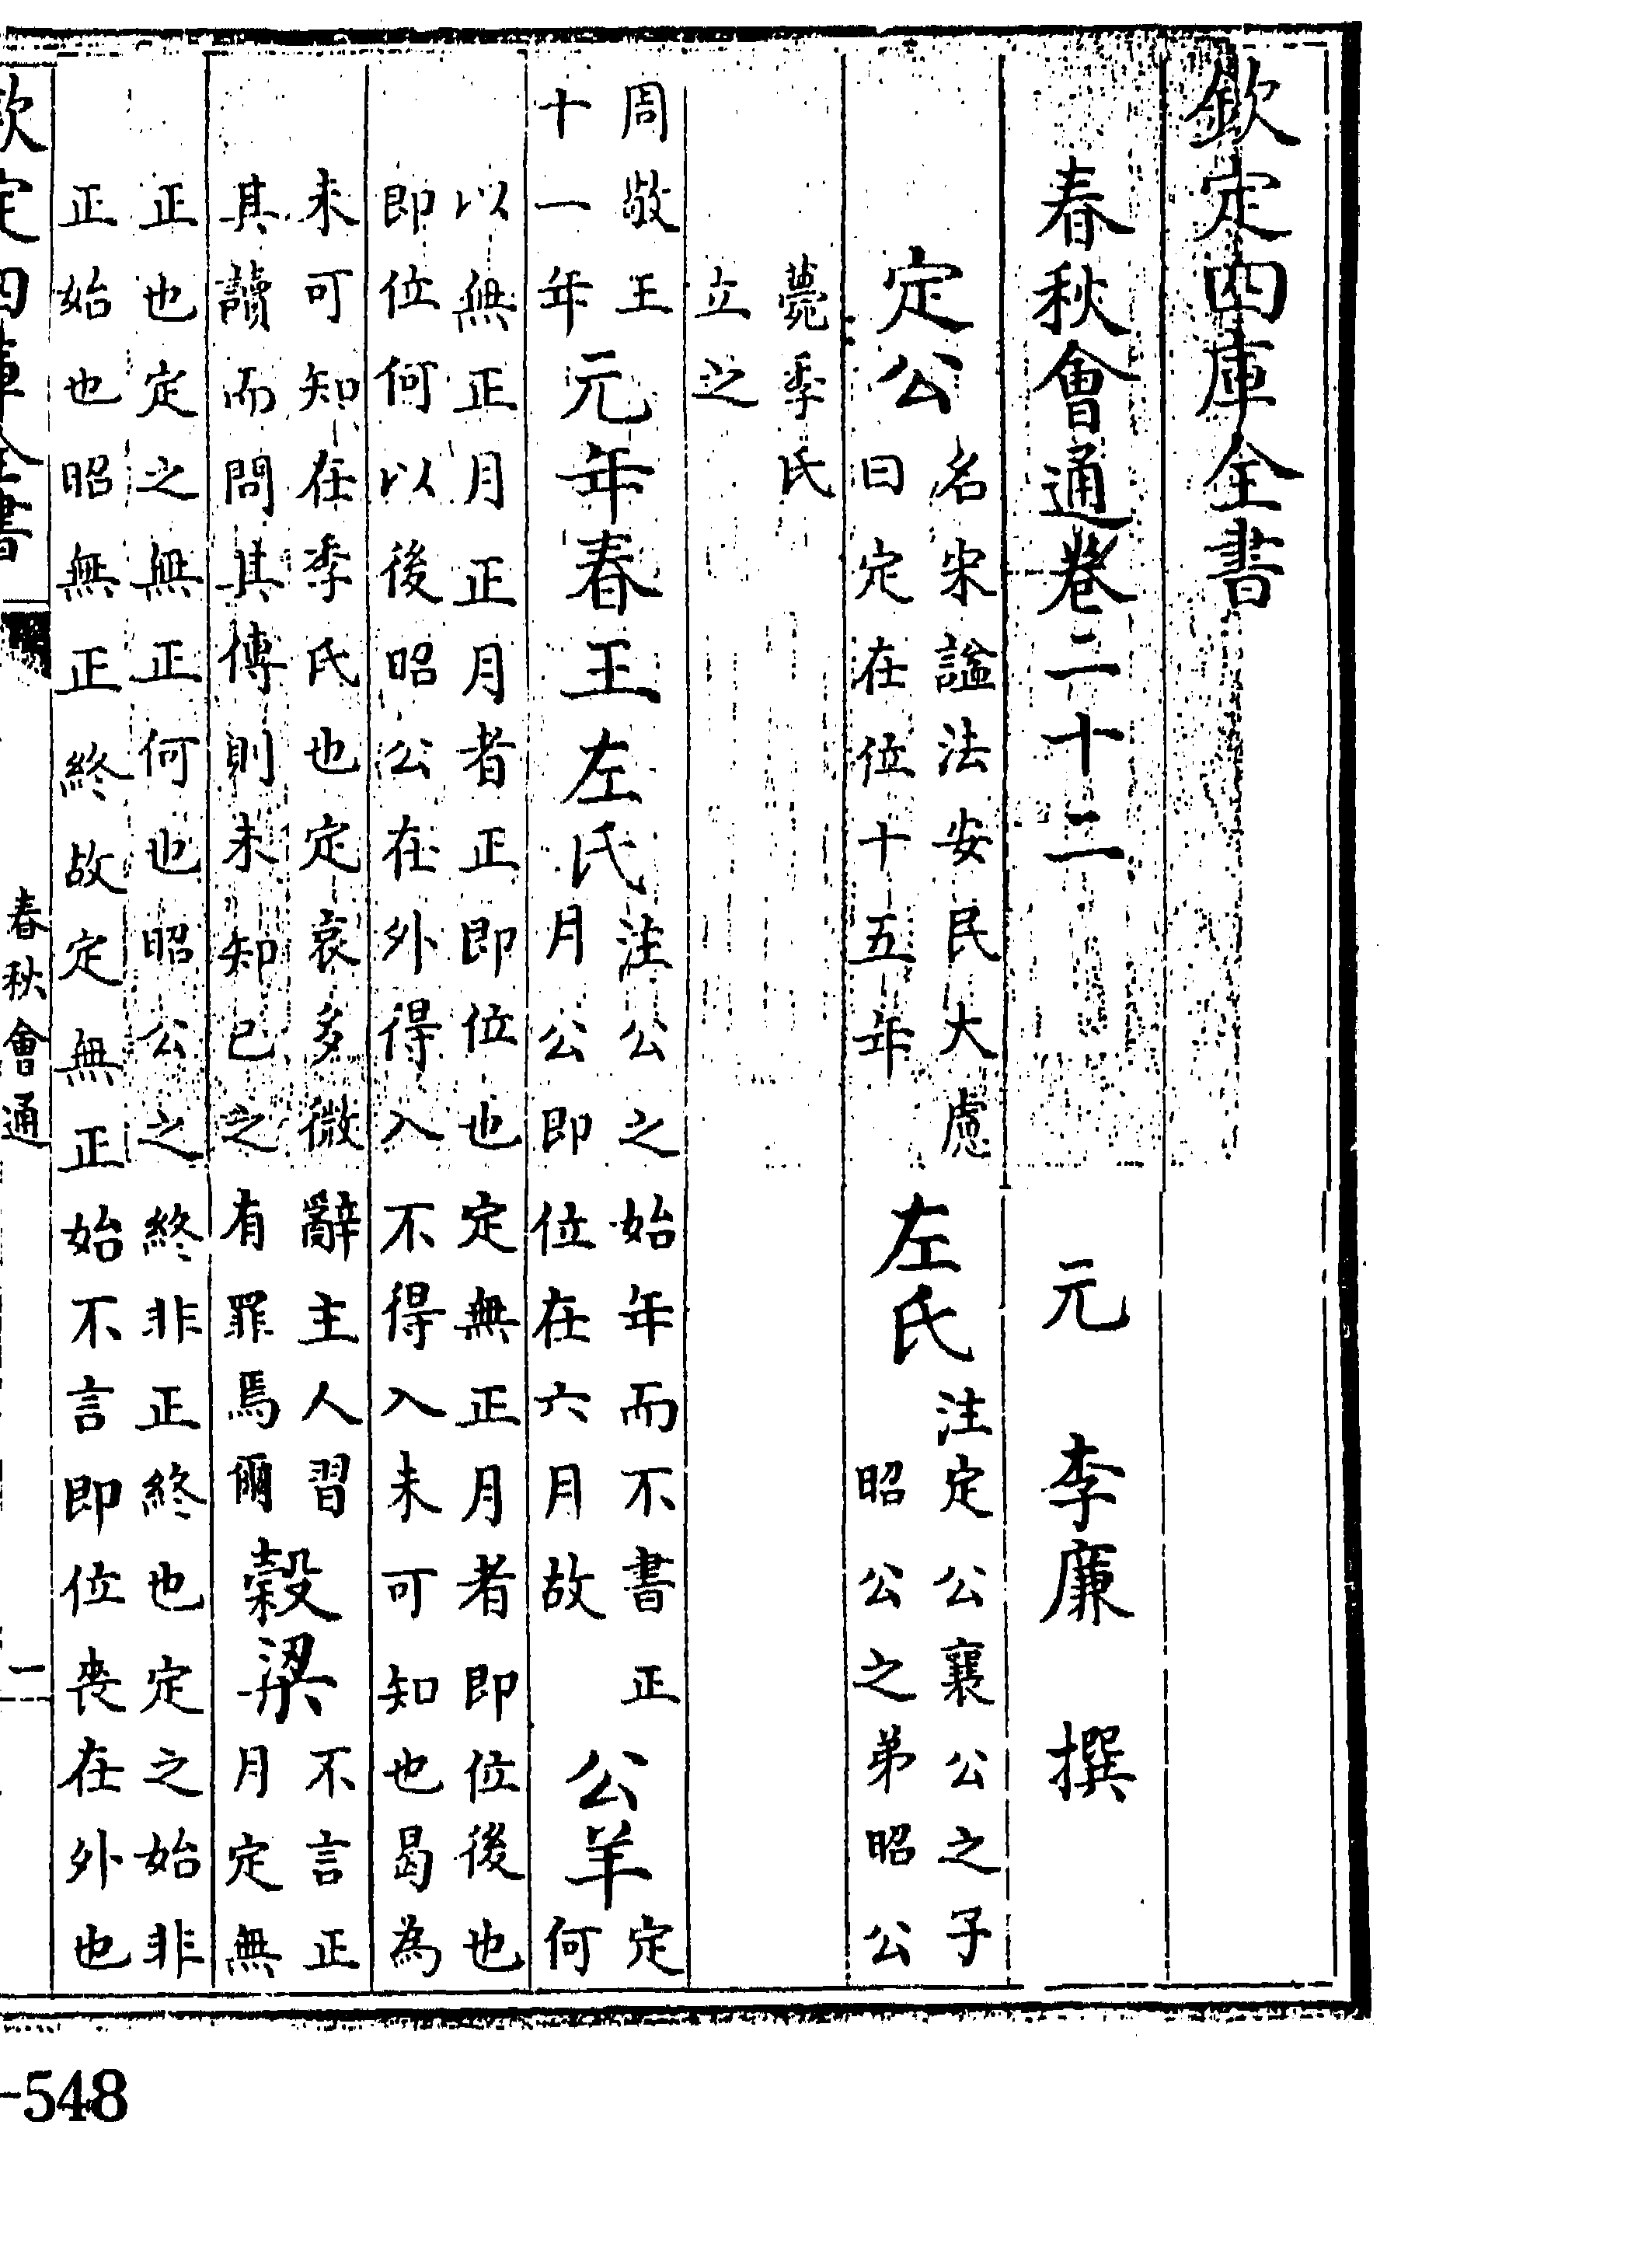 欽定四庫全書
春秋會通卷二十二
元 李廉 撰
定公
名宋諡法安民大慮
曰定在位十五年
左氏
注定公襄公之子
昭公之弟昭公
薨季氏
立之
周敬王
十一年
元年春王
左氏
注公之始年而不書正
月公即位在六月故
公羊
定
何
以無正月正月者正即位也定無正月者即位後也
即位何以後昭公在外得入不得入未可知也曷為
未可知在季氏也定哀多微辭主人習
其讀而問其傳則未知己之有罪焉爾
穀梁
不言正
月定無
正也定之無正何也昭公之終非正終也定之始非
正始也昭無正終故定無正始不言即位喪在外也
欽定四庫全書
春秋會通
一
-548